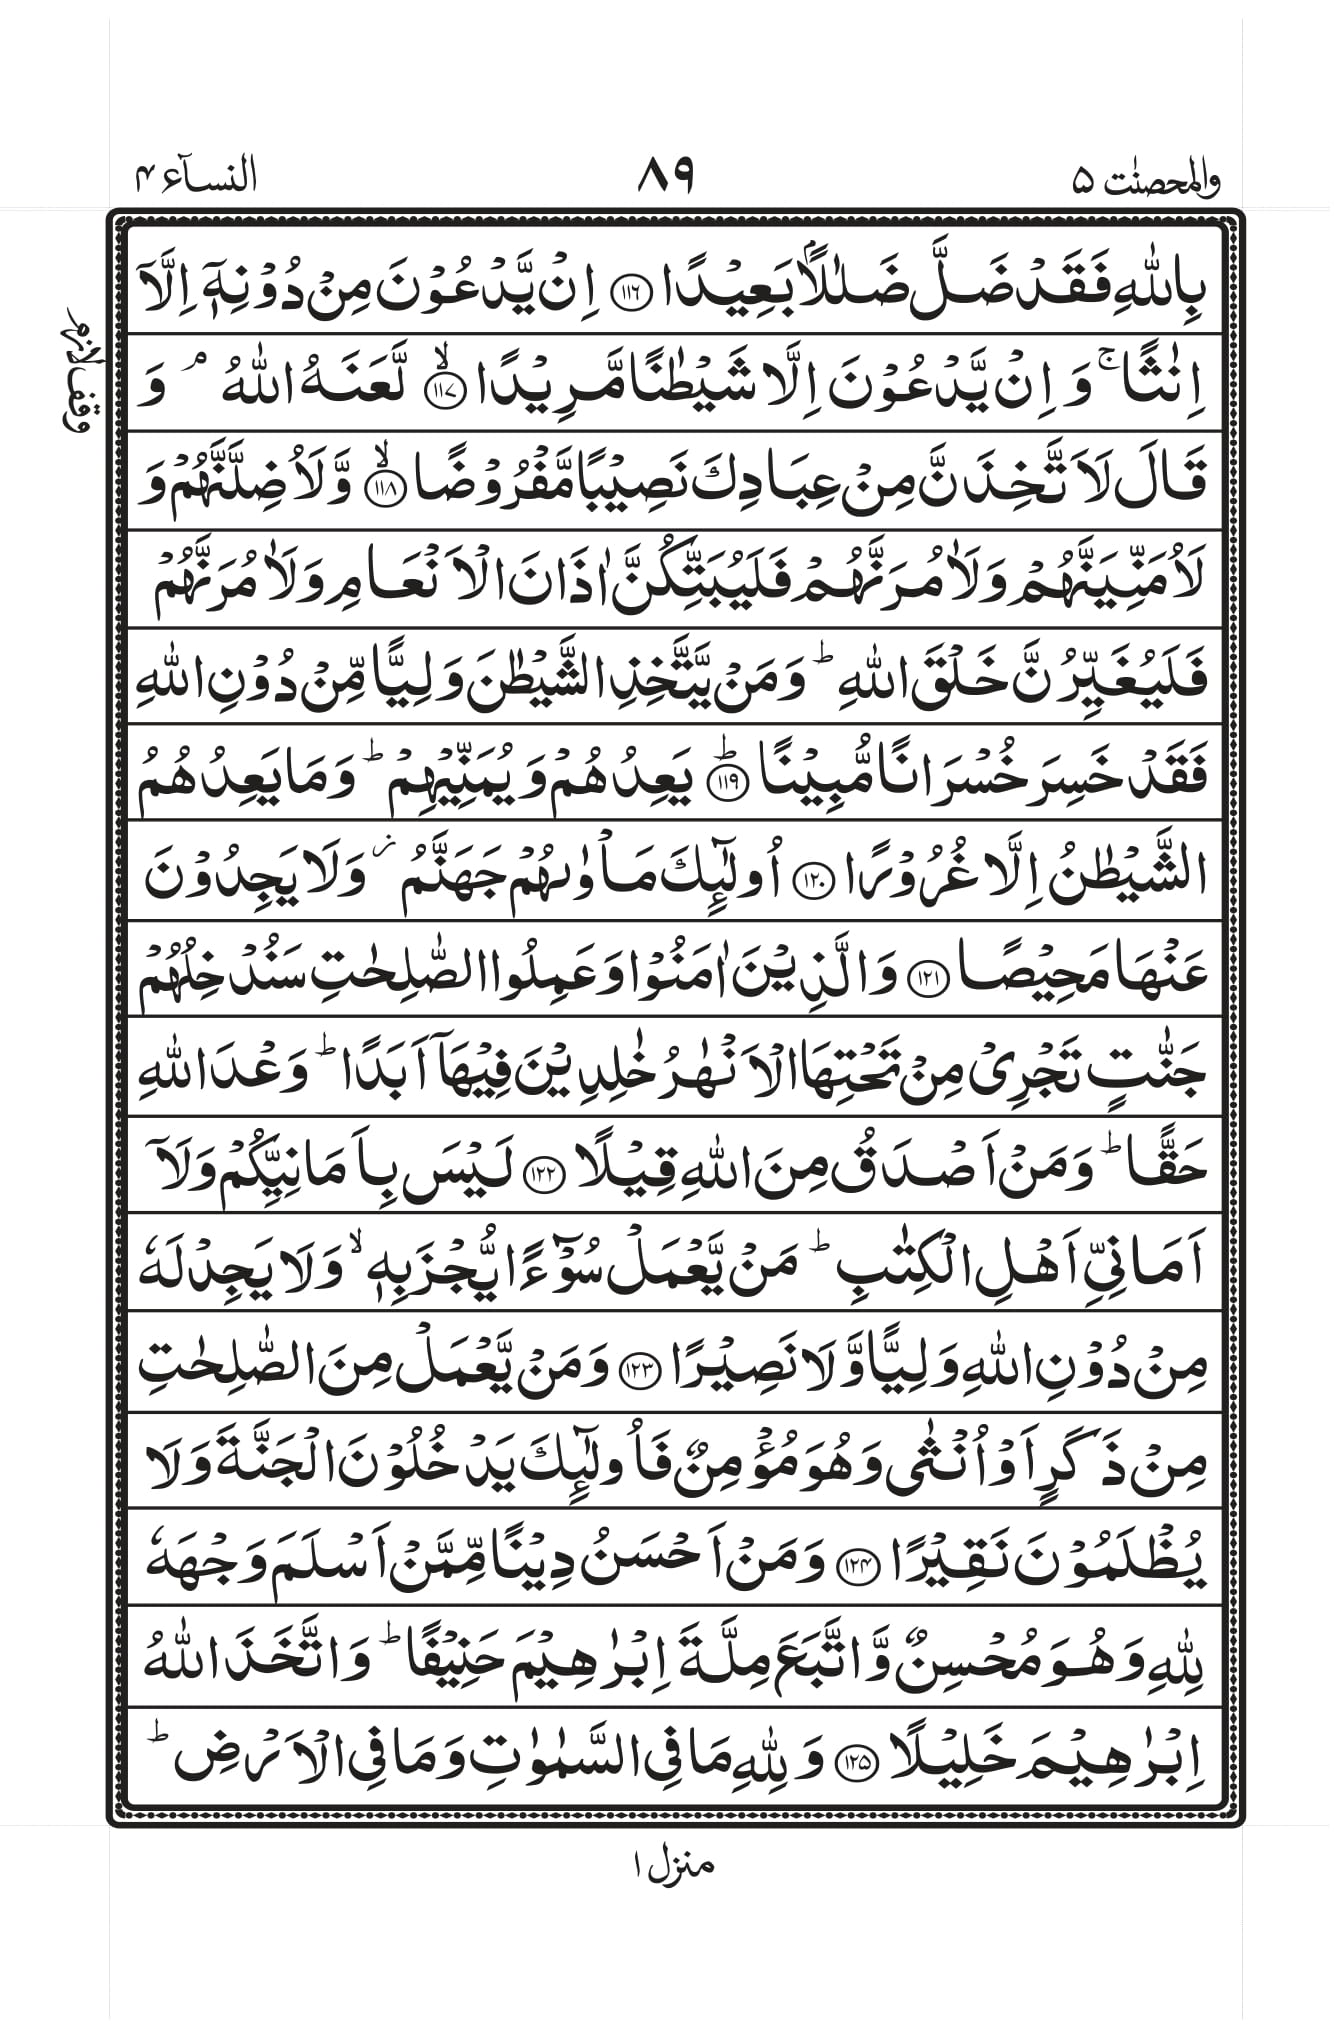 والمحصنٰت ۵
۸۹
النسآء ۴
بِاللّٰهِ فَقَدۡ ضَلَّ ضَلٰلًاۢ بَعِيۡدًا ﴿۱۱۶﴾ اِنۡ يَّدۡعُوۡنَ مِنۡ دُوۡنِهٖۤ اِلَّاۤ
اِنٰثًا ۚ وَ اِنۡ يَّدۡعُوۡنَ اِلَّا شَيۡطٰنًا مَّرِيۡدًا ۙ﴿۱۱۷﴾ لَّعَنَهُ اللّٰهُ ۘ وَ
قَالَ لَاَ تَّخِذَنَّ مِنۡ عِبَادِكَ نَصِيۡبًا مَّفۡرُوۡضًا ۙ﴿۱۱۸﴾ وَّلَاُضِلَّنَّهُمۡ وَ
لَاُمَنِّيَنَّهُمۡ وَلَاٰمُرَنَّهُمۡ فَلَيُبَتِّكُنَّ اٰذَانَ الۡاَنۡعَامِ وَلَاٰمُرَنَّهُمۡ
فَلَيُغَيِّرُنَّ خَلۡقَ اللّٰهِ ؕ وَمَنۡ يَّتَّخِذِ الشَّيۡطٰنَ وَلِيًّا مِّنۡ دُوۡنِ اللّٰهِ
فَقَدۡ خَسِرَ خُسۡرَانًا مُّبِيۡنًا ؕ﴿۱۱۹﴾ يَعِدُهُمۡ وَيُمَنِّيۡهِمۡ ؕ وَمَا يَعِدُهُمُ
الشَّيۡطٰنُ اِلَّا غُرُوۡرًا ﴿۱۲۰﴾ اُولٰٓٮِٕكَ مَاۡوٰٮهُمۡ جَهَنَّمُ ز وَلَا يَجِدُوۡنَ
عَنۡهَا مَحِيۡصًا ﴿۱۲۱﴾ وَالَّذِيۡنَ اٰمَنُوۡا وَعَمِلُوا الصّٰلِحٰتِ سَنُدۡخِلُهُمۡ
جَنّٰتٍ تَجۡرِىۡ مِنۡ تَحۡتِهَا الۡاَنۡهٰرُ خٰلِدِيۡنَ فِيۡهَاۤ اَبَدًا ؕ وَعۡدَ اللّٰهِ
حَقًّا ؕ وَمَنۡ اَصۡدَقُ مِنَ اللّٰهِ قِيۡلًا ﴿۱۲۲﴾ لَيۡسَ بِاَمَانِيِّكُمۡ وَلَاۤ
اَمَانِىِّ اَهۡلِ الۡكِتٰبِ ؕ مَنۡ يَّعۡمَلۡ سُوۡٓءًا يُّجۡزَ بِهٖ ۙ وَلَا يَجِدۡ لَهٗ
مِنۡ دُوۡنِ اللّٰهِ وَلِيًّا وَّلَا نَصِيۡرًا ﴿۱۲۳﴾ وَمَنۡ يَّعۡمَلۡ مِنَ الصّٰلِحٰتِ
مِنۡ ذَكَرٍ اَوۡ اُنۡثٰى وَهُوَ مُؤۡمِنٌ فَاُولٰٓٮِٕكَ يَدۡخُلُوۡنَ الۡجَنَّةَ وَلَا
يُظۡلَمُوۡنَ نَقِيۡرًا ﴿۱۲۴﴾ وَمَنۡ اَحۡسَنُ دِيۡنًا مِّمَّنۡ اَسۡلَمَ وَجۡهَهٗ
لِلّٰهِ وَهُوَ مُحۡسِنٌ وَّاتَّبَعَ مِلَّةَ اِبۡرٰهِيۡمَ حَنِيۡفًا ؕ وَاتَّخَذَ اللّٰهُ
اِبۡرٰهِيۡمَ خَلِيۡلًا ﴿۱۲۵﴾ وَلِلّٰهِ مَا فِى السَّمٰوٰتِ وَمَا فِى الۡاَرۡضِ ؕ
وقف لازم
منزل ۱